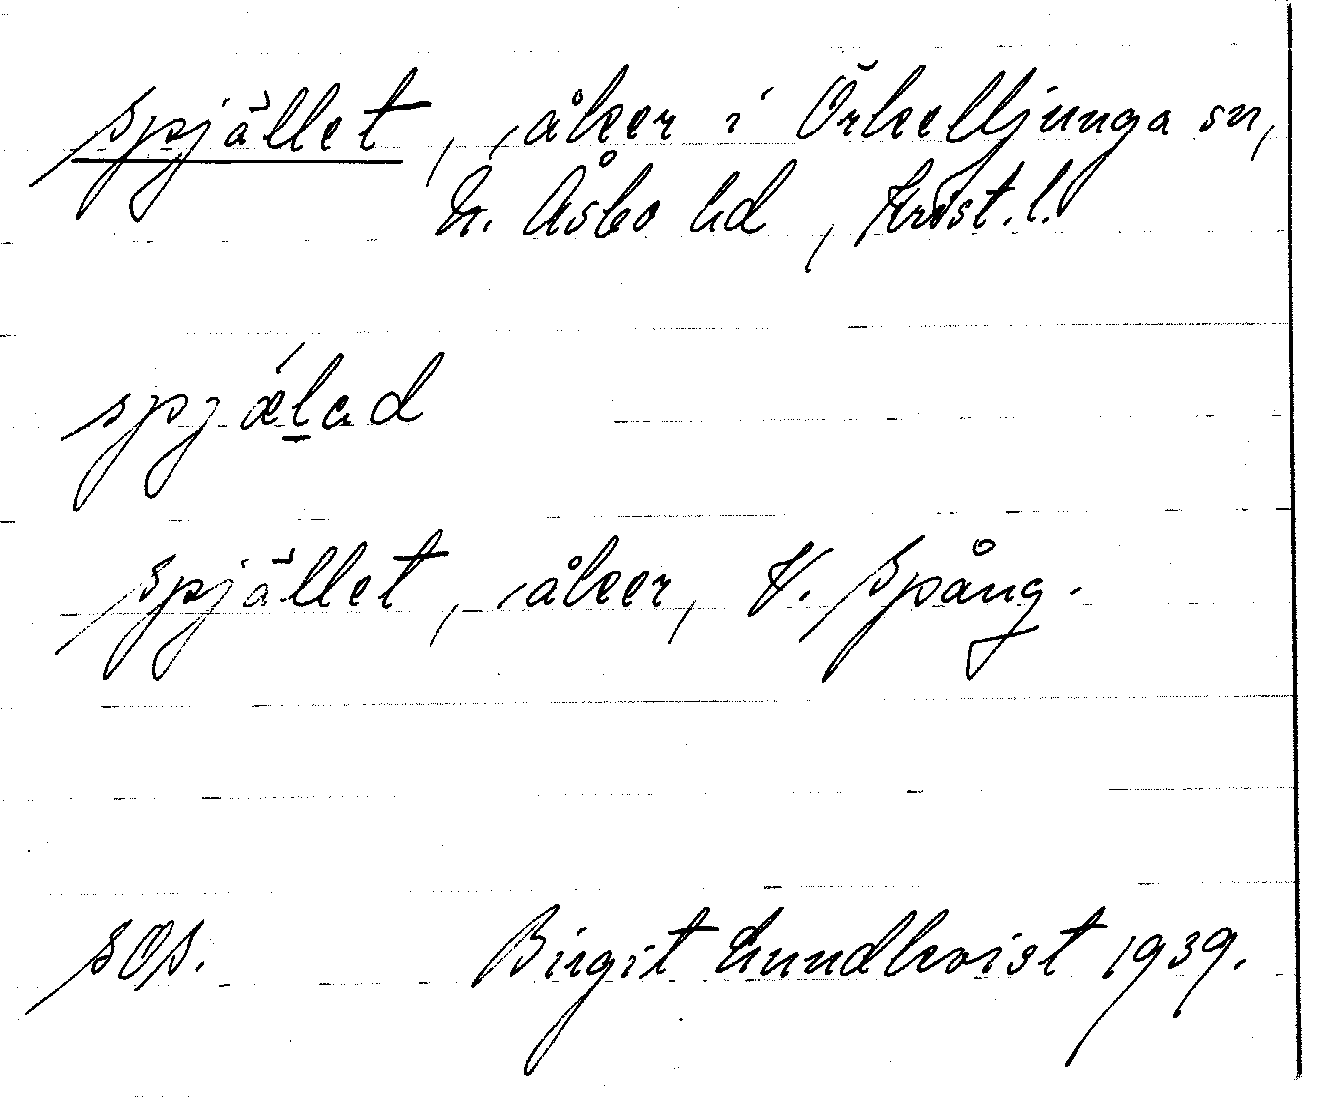 spjället, åker i Örkelljunga sn,
N. Åsbo hd, Krist. l.
spjǽl̲ad
spjället, åker, V. Spång.
sOs. Birgit Lundkvist 1939.